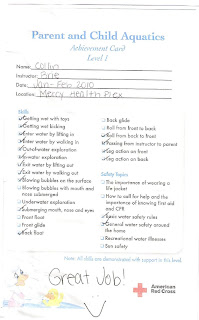 Parent and Child Aquatics
Achievement Card
Level 1
Name: Collin
Instructor: Brie
Date: Jan-Feb 2010
Location: Mercy Health Plex
Skills
Getting wet with toys
Getting wet kicking
Enter water by lifting in
Enter water by walking in
Out-of-water exploration
In-water exploration
Exit water by lifting out
Exit water by walking out
Blowing bubbles on the surface
Blowing bubbles with mouth and
nose submerged
Underwater exploration
Submerging mouth, nose and eyes
Front float
Front glide
Back float
Back glide
Roll from front to back
Roll from back to front
Passing from instructor to parent
Leg action on front
Leg action on back
Safety Topics
The importance of wearing a
life jacket
How to call for help and the
importance of knowing first aid
and CPR
Basic water safety rules
General water safety around
the home
Recreational water illnesses
Sun safety
Note: All skills are demonstrated with support in this level.
Great Job!
American
Red Cross